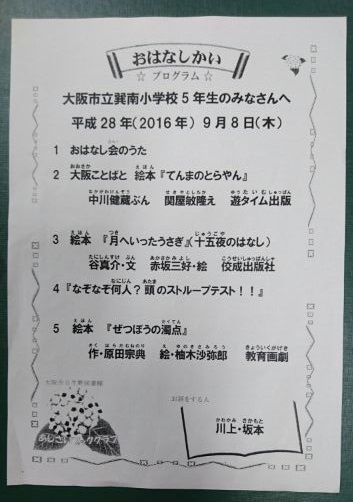 おはなしかい
☆ プログラム ☆
大阪市立巽南小学校5年生のみなさんへ
平成28年(2016年) 9月8日(木)
1 おはなし会のうた
2 大阪ことばと 絵本『てんまのとらやん』
中川健蔵ぶん 関屋敏隆え 遊タイム出版
3 絵本 『月へいったうさぎ』(十五夜のはなし)
谷真介・文 赤坂三好・絵 佼成出版社
4『なぞなぞ何人?頭のストループテスト!!』
5 絵本 『ぜつぼうの濁点』
作・原田宗典 絵・柚木沙弥郎 教育画劇
大阪市立生野図書館
あじさいブッククラブ
お話をする人
川上・坂本